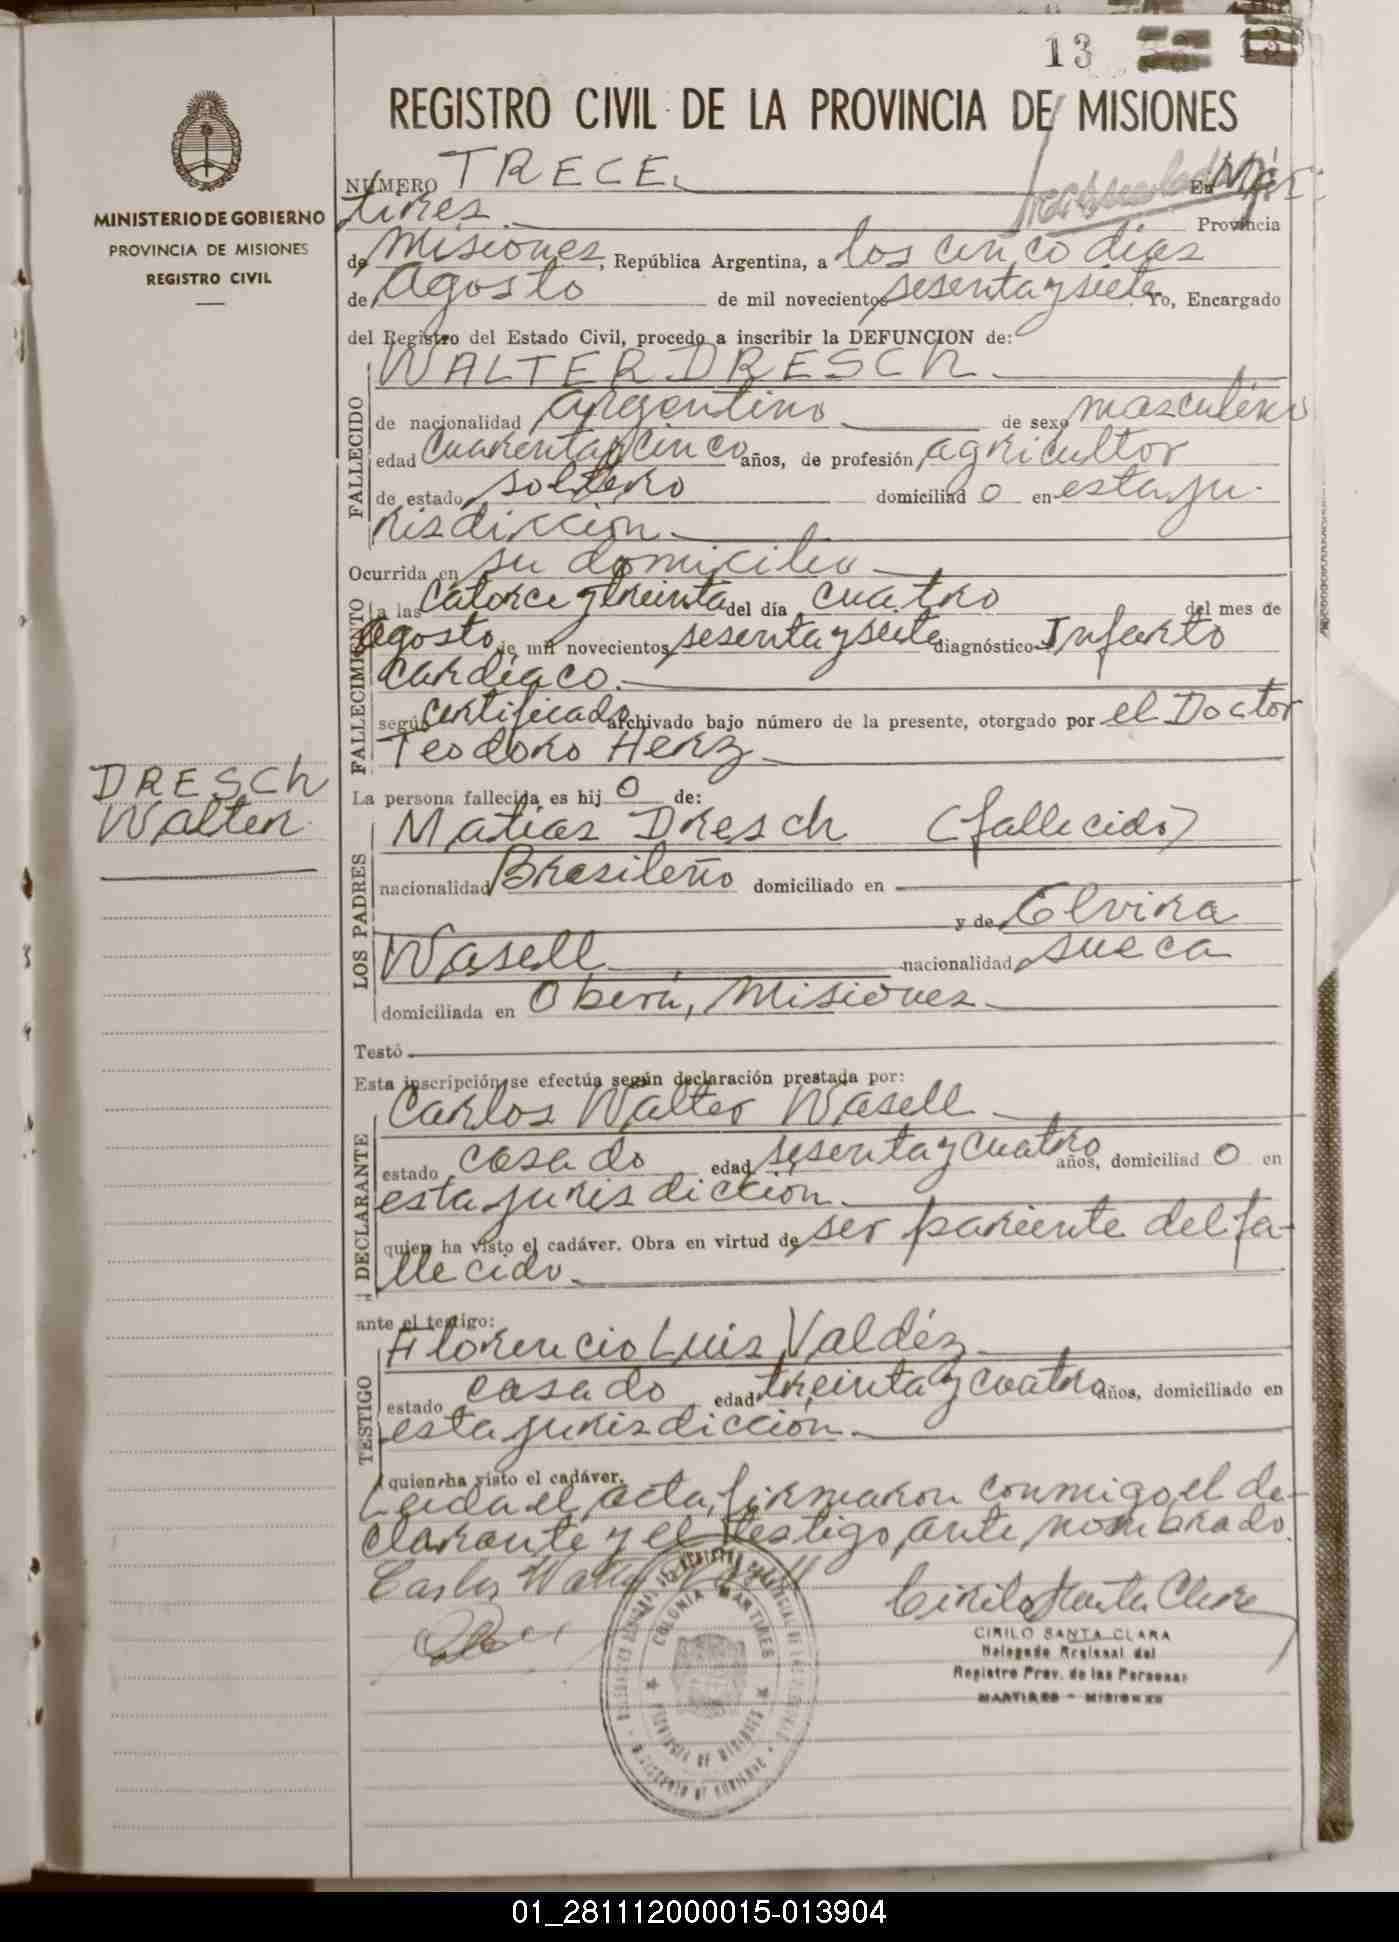 13
REGISTRO CIVIL DE LA PROVINCIA DE MISIONES
MINISTERIO DE GOBIERNO
PROVINCIA DE MISIONES
REGISTRO CIVIL
NÚMERO TRECE. En Már
tires Provincia
de Misiones, República Argentina, a los cinco dias
de Agosto de mil novecientos sesenta y siete Yo, Encargado
del Registro del Estado Civil, procedo a inscribir la DEFUNCION de:
FALLECIDO
WALTER DRESCh
de nacionalidad argentino de sexo masculino
edad cuarenta y cinco años, de profesión agricultor
de estado soltero domiciliad o en esta ju-
risdicción.
Ocurrida en su domicilio
FALLECIMIENTO
a las catorce y treinta del día cuatro del mes de
Agosto de mil novecientos sesenta y siete diagnóstico Infarto
cardíaco.
según certificado archivado bajo número de la presente, otorgado por el Doctor
Teodoro Herz
DRESCh
Walter
La persona fallecida es hij o de:
LOS PADRES
Matias Dresch (fallecido)
nacionalidad Brasileño domiciliado en
y de Elvira
Wasell nacionalidad sueca
domiciliada en Oberá, Misiones
Testó
Esta inscripción se efectúa según declaración prestada por:
DECLARANTE
Carlos Walter Wasell
estado casado edad sesenta y cuatro años, domiciliad o en
esta jurisdicción
quien ha visto el cadáver. Obra en virtud de ser pariente del fa-
llecido.
ante el testigo:
TESTIGO
Florencio Luis Valdéz
estado casado edad treinta y cuatro años, domiciliado en
esta jurisdicción.
quien ha visto el cadáver.
Leida el acta, firmaron conmigo, el de-
clarante y el testigo ante nombrado.
Carlos Walter Wasell
Cirilo Santa Clara
CIRILO SANTA CLARA
Delegado Regional del
Registro Prov. de las Personas
MARTIRES - MISIONES
COLONIA MARTIRES
PROVINCIA DE MISIONES
MINISTERIO DE GOBIERNO
01_281112000015-013904